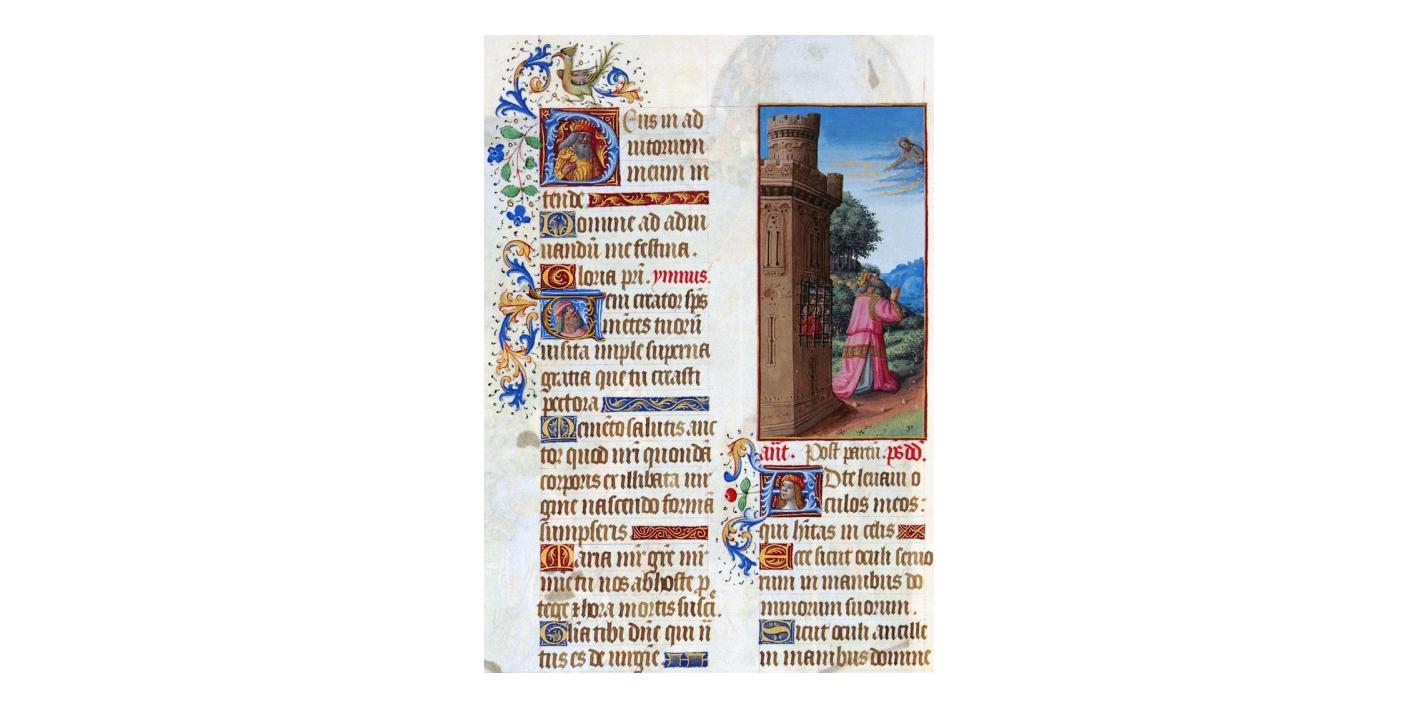 Deus in ad
iutorium
meum in
tende
Domine ad adiu
uandū me festina.
Gloria pr̄i. ymnus.
Veni creator sp̄s
mētes tuorū
uisita imple superna
gratia que tu creasti
pectora
Memēto salutis auc
tor quod nr̄i quondā
corporis ex illibata uir
gine nascendo formā
sumpseris
Maria mr̄ gr̄e mr̄
mīe tu nos ab hoste p
tege & hora mortis suscī.
Gl̄ia tibi dn̄e qui n̄
tus es de uirgīe
ant̄. Post partū. ps. dd̄.
Ad te leuaui o
culos meos:
qui hītas in celis
Ecce sicut oculi seruo
rum in manibus do
minorum suorum.
Sicut oculi ancille
in manibus domine